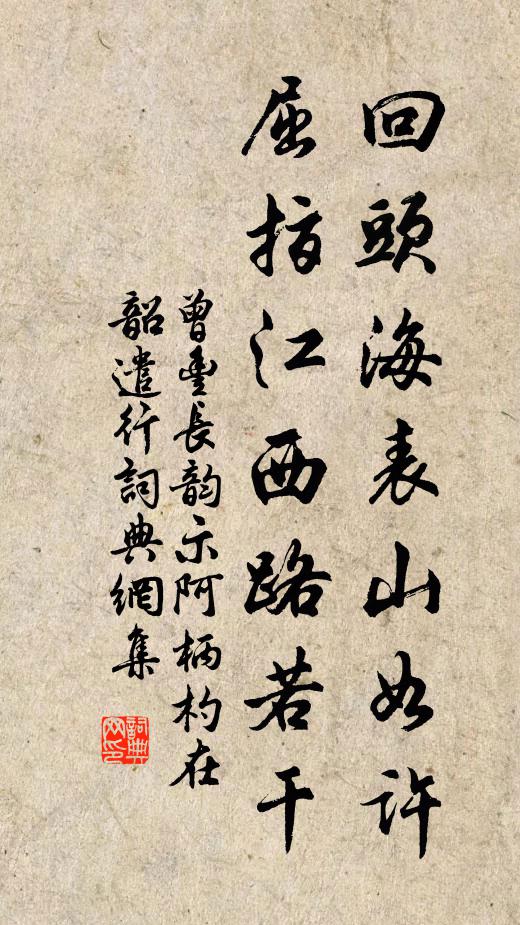 回頭海表山如許
屈指江西路若干
曾豐長韵示阿柄杓在
韶遣行詞典網集
詞典
网印